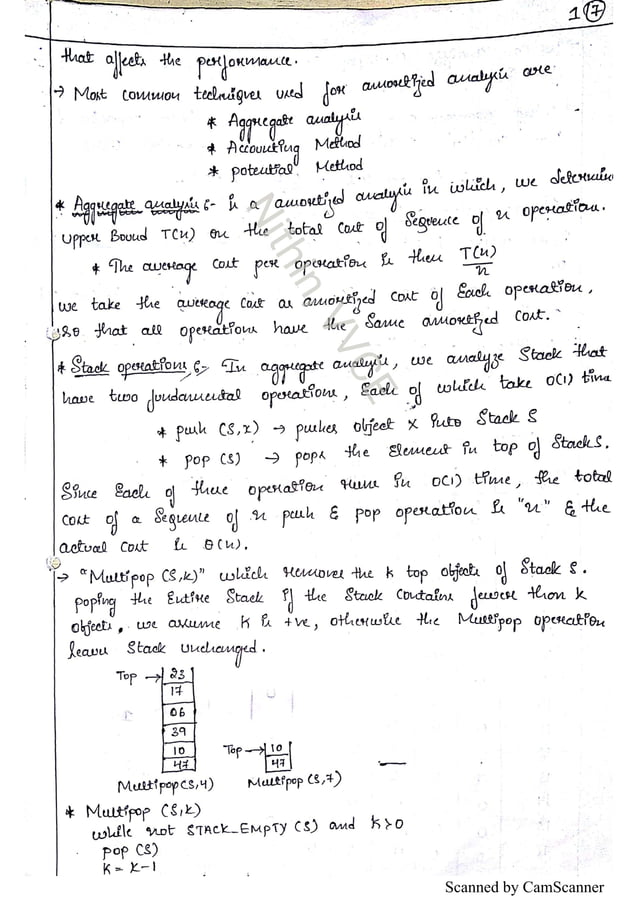 1 17
that affects the performance.
→ Most common techniques used for amortized analysis are
* Aggregate analysis
* Accounting Method
* potential Method
* Aggregate analysis :- Is a amortized analysis in which, we determine
upper Bound T(n) on the total cost of Sequence of n operation.
* The average cost per operation is then T(n)/n
we take the average cost as amortized cost of Each operation,
so that all operations have the Same amortized cost.
* Stack operations :- In aggregate analysis, we analyze Stack that
have two fundamental operations, Each of which take O(1) time
* push (S,x) → pushes object x into Stack S
* pop (S) → pops the Element in top of Stack S.
Since Each of these operation runs in O(1) time, the total
cost of a Sequence of n push & pop operation is "n" & the
actual cost is θ(n).
→ "Multipop (S,k)" which removes the k top objects of Stack S.
poping the Entire Stack if the Stack Contains fewer than k
objects, we assume k is +ve, otherwise the Multipop operation
leaves Stack unchanged.
Top → 23
17
06
39
10 Top → 10
47 47
Multipop(S,4) Multipop (S,7)
* Multipop (S,k)
while not STACK_EMPTY (S) and k>0
pop (S)
k = k-1
Nithin VVCE
Scanned by CamScanner